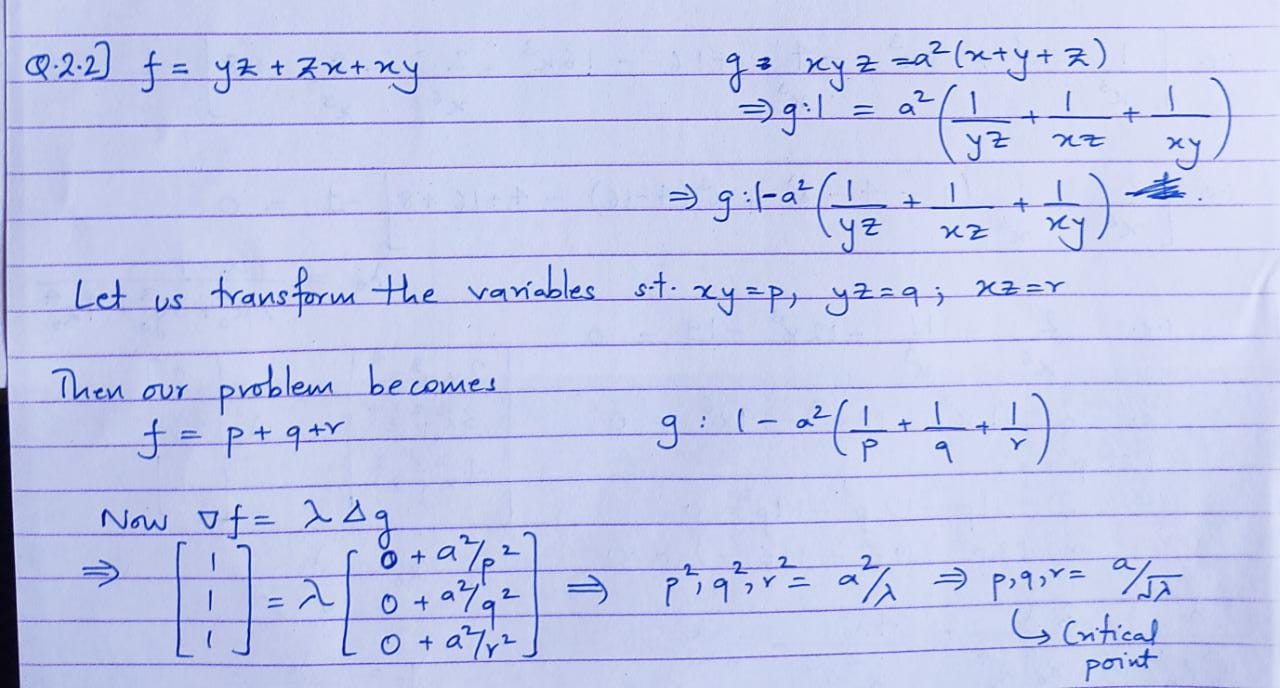 Q.2.2] f = yz + zx + xy    g = xyz = a²(x+y+z)
⇒ g: 1 = a²(1/yz + 1/xz + 1/xy)
⇒ g: 1-a²(1/yz + 1/xz + 1/xy)
Let us transform the variables s.t. xy=p, yz=q; xz=r
Then our problem becomes
f = p+q+r    g: 1 - a²(1/p + 1/q + 1/r)
Now ∇f = λ Δg
⇒ [1 1 1] = λ [0 + a²/p² 0 + a²/q² 0 + a²/r²] ⇒ p², q², r² = a²/λ ⇒ p,q,r = a/√λ
↳ Critical
point